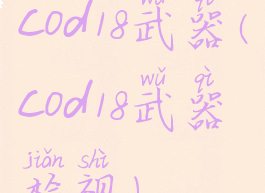 wǔ qì
cod18武器(
wǔ qì
cod18武器
jiǎn shì
检视)